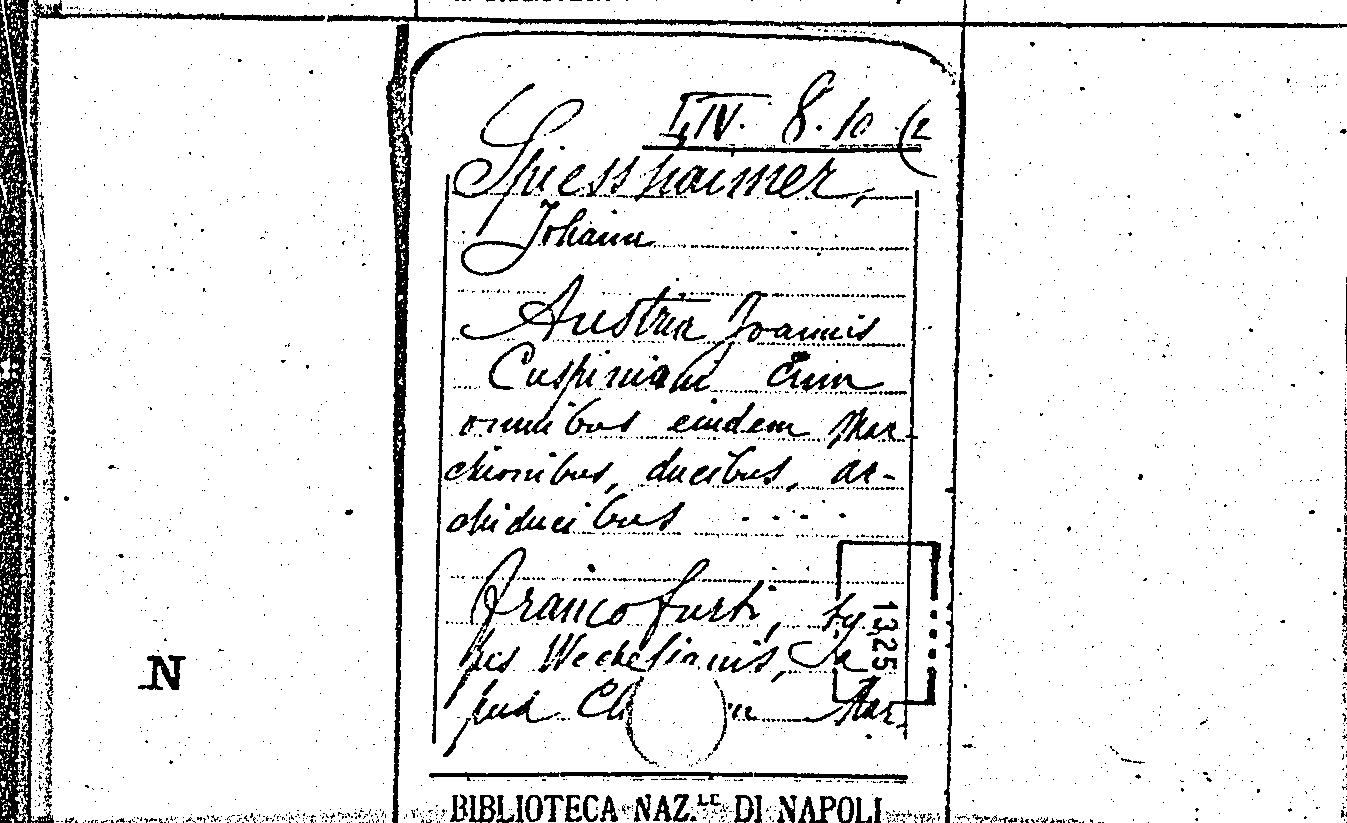 I,IV. 8.10 (2
Spiesshaimer,
Johann
Austria Joannis
Cuspiniani cum
omnibus eiudem Mar-
chionibus, ducibus, ar-
chiducibus . . . .
Francofurti, ty
pis Wechelianis, a
pud Cl m Mar.
1325
N
BIBLIOTECA NAZ.LE DI NAPOLI